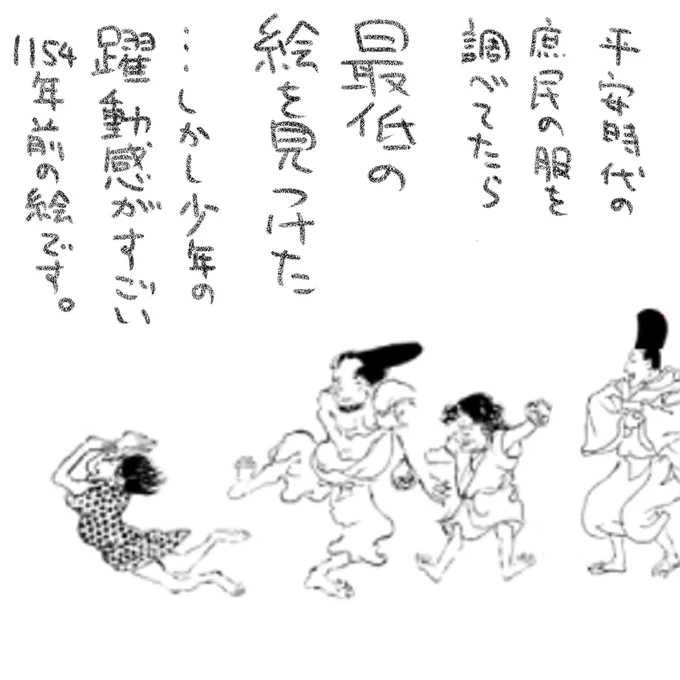 平安時代の
庶民の服を
調べてたら
最低の
絵を見つけた
…しかし少年の
躍動感がすごい
1154年前の絵です。